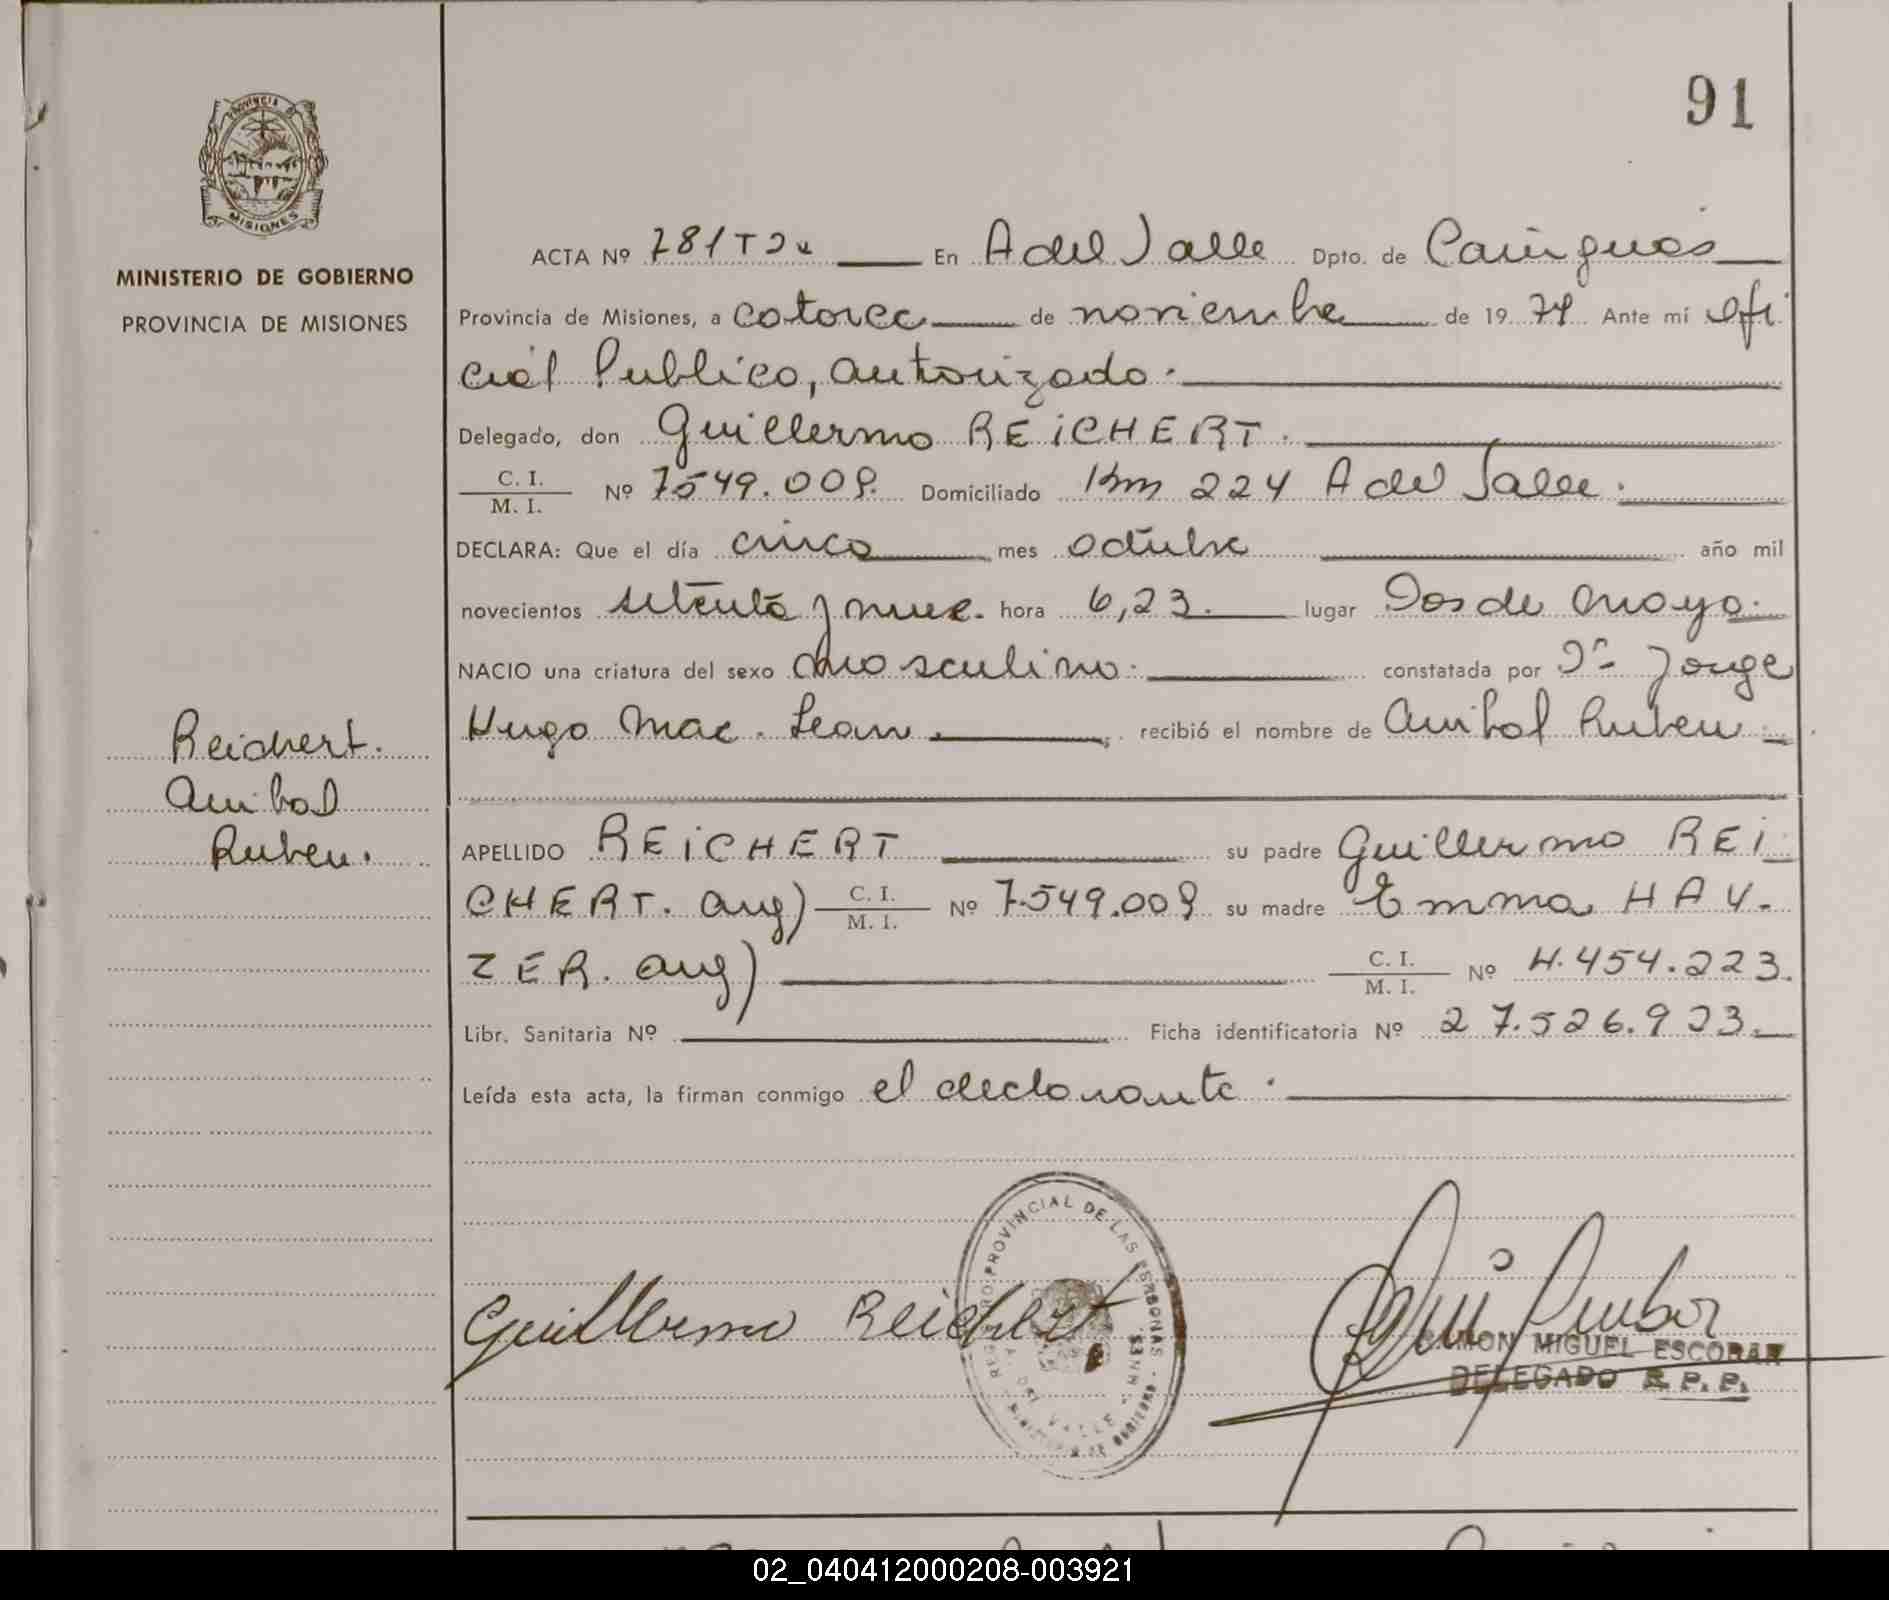 91
PROVINCIA DE
MISIONES
MINISTERIO DE GOBIERNO
PROVINCIA DE MISIONES
ACTA Nº 281 T 2º En A del Valle Dpto. de Cainguas
Provincia de Misiones, a catorce de noviembre de 19 79 Ante mí Ofi
cial Publico, autorizado.
Delegado, don Guillermo REiCHERT.
C. I.
M. I. Nº 7.549.009. Domiciliado Km 224 A del Valle.
DECLARA: Que el día cinco mes octubre año mil
novecientos setenta y nueve. hora 6,23. lugar Dos de Mayo.
NACIO una criatura del sexo Masculino. constatada por Dr. Jorge
Hugo Mac. Lean. recibió el nombre de Anibal Ruben
Reichert.
Anibal
Ruben.
APELLIDO REiCHERT su padre Guillermo REi
CHERT. arg) C. I.
M. I. Nº 7.549.009 su madre Emma HAU-
ZER. arg) C. I.
M. I. Nº 4.454.223.
Libr. Sanitaria Nº Ficha identificatoria Nº 27.526.923.
Leída esta acta, la firman conmigo el declarante.
Guillermo Reichert
PROVINCIAL DE LAS PERSONAS
RAMON MIGUEL ESCOBAR
DELEGADO R. P. P.
02_040412000208-003921